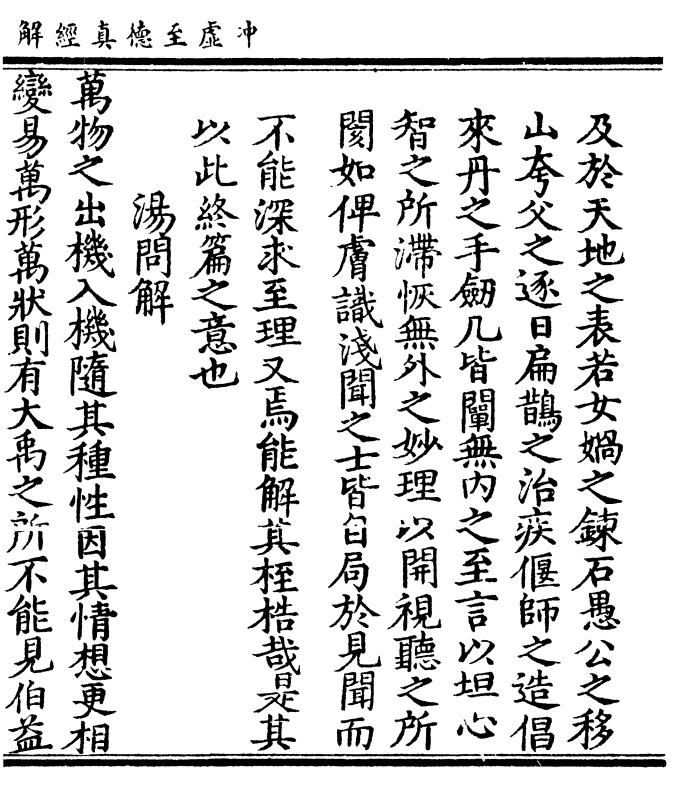 冲虛至德真經解
及於天地之表若女媧之鍊石愚公之移
山夸父之逐日扁鵲之治疾偃師之造倡
來丹之手劒凡皆闡無內之至言以坦心
智之所滯恢無外之妙理以開視聽之所
閡如俾膚識淺聞之士皆自局於見聞而
不能深求至理又焉能解其桎梏哉是其
以此終篇之意也
湯問解
萬物之出機入機隨其種性因其情想更相
變易萬形萬狀則有大禹之所不能見伯益